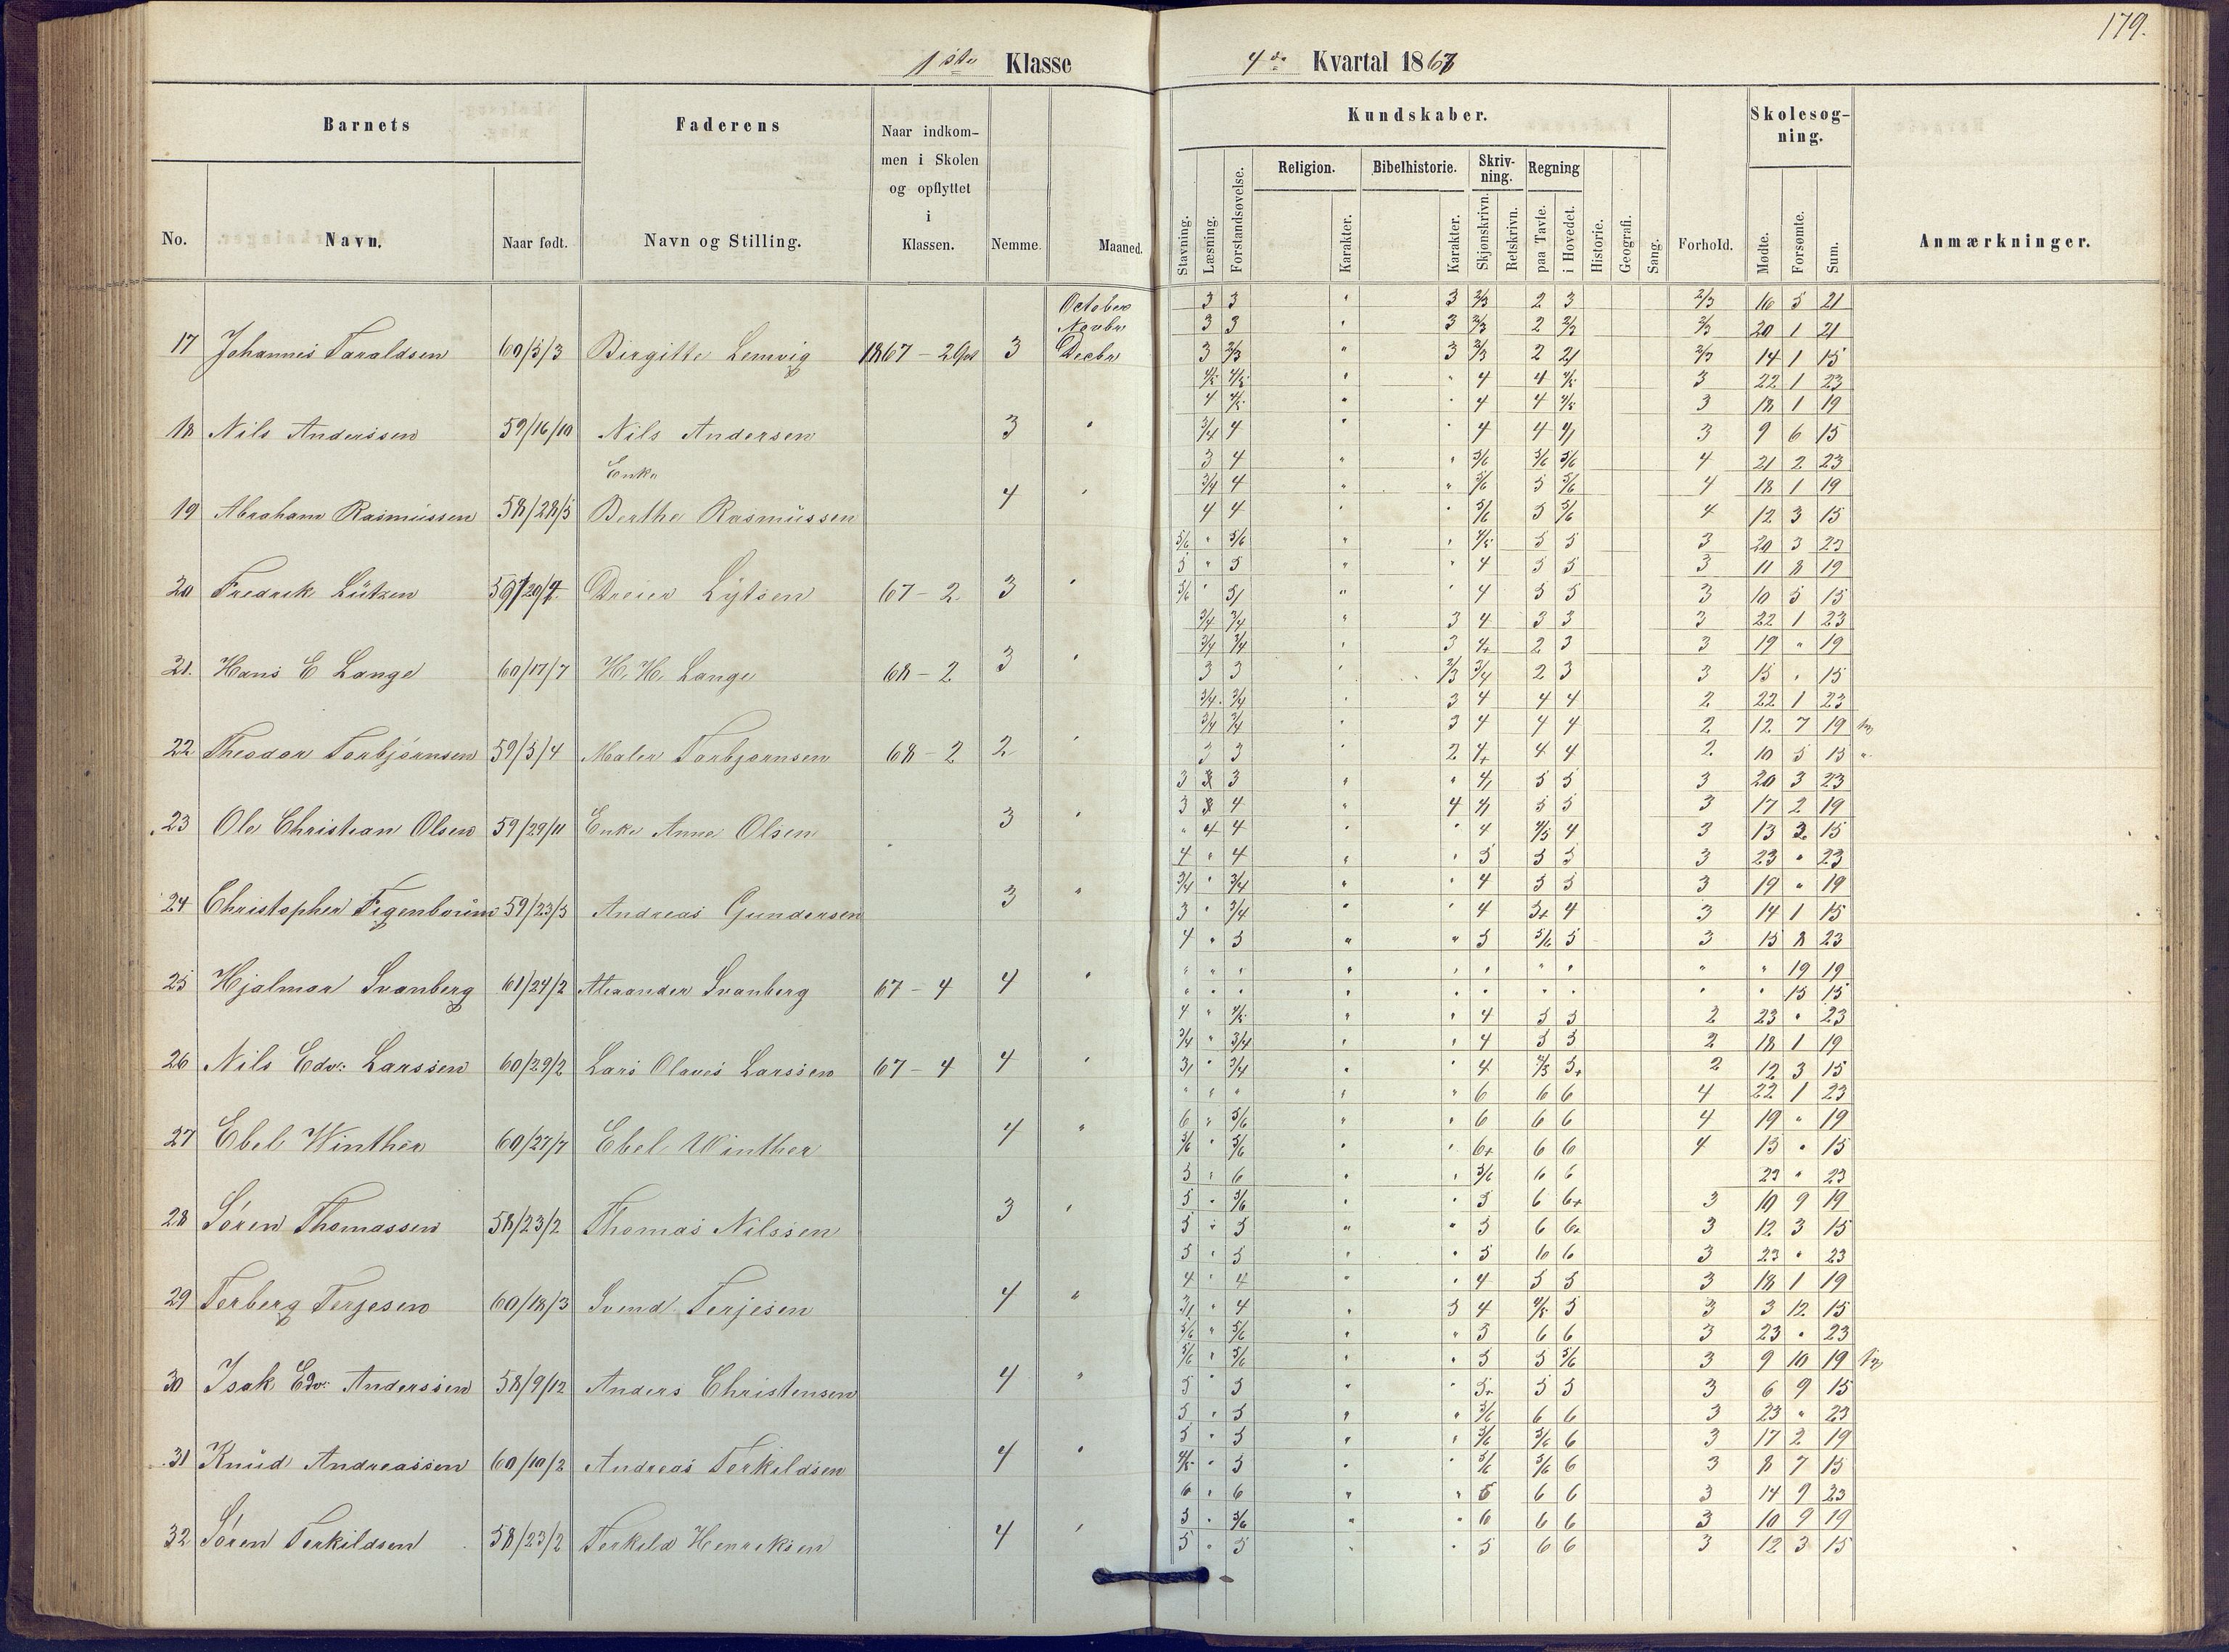 179.
1ste Klasse
4de Kvartal 1867
Barnets
Faderens
Naar indkommen i Skolen og opflyttet i Klassen.
Nemme.
Maaned.
Kundskaber.
Forhold.
Skolesøgning.
Anmærkninger.
No.
Navn.
Naar født.
Navn og Stilling.
Stavning.
Læsning.
Forstandsøvelse.
Religion.
Karakter.
Bibelhistorie.
Karakter.
Skrivning.
Skjønskrivn.
Retskrivn.
Regning
paa Tavle.
i Hovedet.
Historie.
Geografi.
Sang.
Mødte.
Forsømte.
Sum.
October 3 3 " 3 2/3 2 3 2/3 16 5 21
Novbr 3 3 " 3 2/3 2 2/3 2/3 20 1 21
17 Johannes Taraldsen 60/5/3 Birgitte Lemvig 1867 - 2 3 Decbr 3 2/3 " 3 2/3 2 2/3 14 1 15
4/5 4/5 " " 4 4 4/5 3 22 1 23
4 4/5 " " 4 4 4/5 3 18 1 19
18 Nils Anderssen 59/16/10 Nils Andersen 3 " 3/4 4 " " 4 4 3 9 6 15
Enke 3 4 " " 5/6 5/6 5/6 4 21 2 23
3/4 4 " " 5/6 5 5/6 4 18 1 19
19 Abraham Rasmüssen 58/28/5 Berthe Rasmüssen 4 " 4 4 " " 5/6 5 5/6 4 12 3 15
5/6 " 5/6 " " 4/5 5 5 3 20 3 23
5 " 5 " " 4 5 5 3 11 8 19
20 Fredrik Lützen Dreier Lÿtsen 67 - 2 3 " 5/6 " " " 4 5 5 3 10 5 15
3/4 3/4 " 3 4 3 3 3 22 1 23
3/4 3/4 " 3 4+ 2 3 3 19 " 19
21. Hans E Lange 60/17/7 H. H. Lange 68 - 2 3 " 3 3 " 2/3 3/4 2 3 3 15 " 15
3/4 3/4 " 3 4 4 4 2 22 1 23
3/4 3/4 " 3 4 4 4 2 12 7 19
22 Theodor Torbjørnsen 59/5/4 Maler Torbjørnsen 68 - 2 2 " 3 3 " 2 4+ 4 4 2 10 5 15 "
3 3 " " 5 5 3 20 3 23
3 4 " 4 5 5 3 17 2 19
23 Ole Christian Olsen 59/29/11 Enke Anne Olsen 3 " " 4 4 " " 4 4/5 4 3 13 15
4 " 4 " " 5 5 5 3 23 " 23
3/4 " 3/4 " " 4 5 5 3 19 " 19
24 Christopher Figenboum 59/23/5 Andreas Gundersen 3 " 3 " 3/4 " " 4 5+ 4 3 14 1 15
4 " 5 " " 5 5/6 5 3 15 8 23
" " " " " " " " " " 19 19
25 Hjalmar Svanberg 61/24/2 Alexander Svanberg 67 - 4 4 " " " " " " " " " " " 15 15
4 " 4/5 " " 4 5 5 2 23 " 23
3/4 " 3/4 " " 4 5 5 2 18 1 19
26 Nils Edv: Larssen 60/29/2 Lars Olaves Larssen 67 - 4 4 " " 3/4 " " 4 4/5 5+ 2 12 3 15
" " " " " 6 6 6 4 22 1 23
6 " 5/6 " " 6 6 6 4 19 " 19
27 Ebel Winther 60/27/7 Ebel Winther 4 " 5/6 " 5/6 " " 6+ 6 6 4 15 " 15
5 " 6 " " 5/6 6 6 23 " 23
5 " 5/6 " " 5 6 6+ 3 10 9 19
28 Søren Thomassen 58/23/2 Thomas Nilssen 3 " 5 " 5 " " 5 6 6+ 3 12 3 15
5 " 5 " " 5 6 6 3 23 " 23
4 " 4 " " 4 5 5 3 18 1 19
29 Terberg Terjesen 60/18/3 Svend Terjesen 4 " " 4 " 5 4 4/5 5 3 3 12 15
5/6 " 5/6 " " 5 6 6 3 23 " 23
5/6 " 5/6 " " 5 5 5/6 3 9 10 19
30 Isak Edv: Anderssen 58/9/12 Anders Christensen 4 " 5 " 5 " " 5+ 5 5 3 6 9 15
5 " 5 " " 5/6 6 6 3 23 " 23
5 " 5 " " 5/6 5/6 6 3 17 2 19
31 Knüd Andreassen 60/10/2 Andreas Terkildsen 4 " 4/5 " 5 " " 5/6 5/6 6 3 8 7 15
6 " 6 " " 6 6 3 14 9 23
5 " 5/6 " " 6 6 6 3 10 9 19
32 Søren Terkildsen 58/23/2 Terkild Henriksen 4 " 5 " 5 " " 5 6 6 3 12 3 15